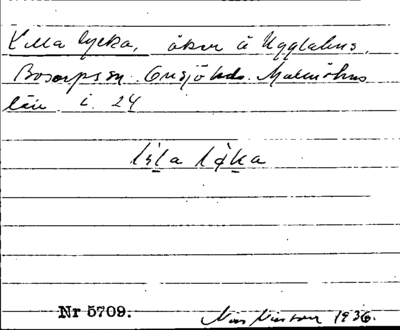 Lilla lycka, åker å Ugglahus,
Bosarps sn. Onsjö hd. Malmöhus
län i. 24
Nr 5709. Nils Nilsson 1936.